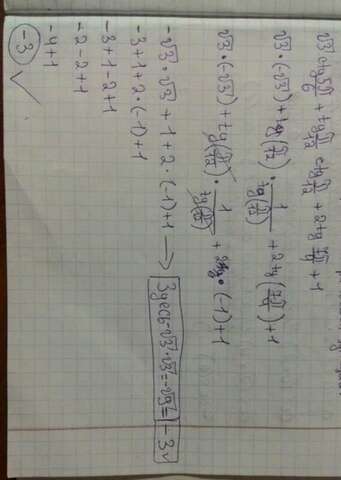 √3 ctg 5π/6 + tg π/12 ctg π/12 + 2tg 7π/4 + 1
√3 · (-√3) + tg (π/12) · 1/tg(π/12) + 2tg (7π/4) + 1
√3 · (-√3) + tg (π/12) · 1/tg(π/12) + 2 · (-1) + 1
-√3 · √3 + 1 + 2 · (-1) + 1 → Здесь -√3 · √3 = -√9 = -3
-3 + 1 + 2 · (-1) + 1
-3 + 1 - 2 + 1
-2 - 2 + 1
-4 + 1
-3